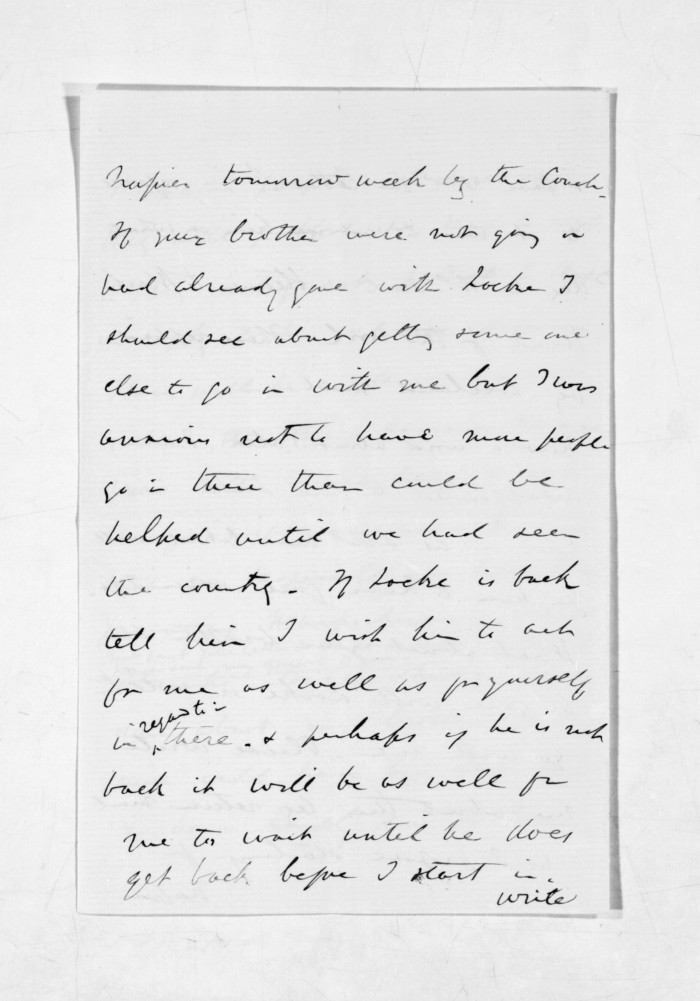 Napier tomorrow week by the Coach.
If your brother were not going or
had already gone with Locke I
should see about getting some one
else to go in with me but I was
anxious not to have more people
go in there than could be
helped until we had seen
the country. If Locke is back
tell him I wish him to act
for me as well as for yourself
in there. & perhaps if he is not
back it will be as well for
me to wait until he does
get back before I start in.
write